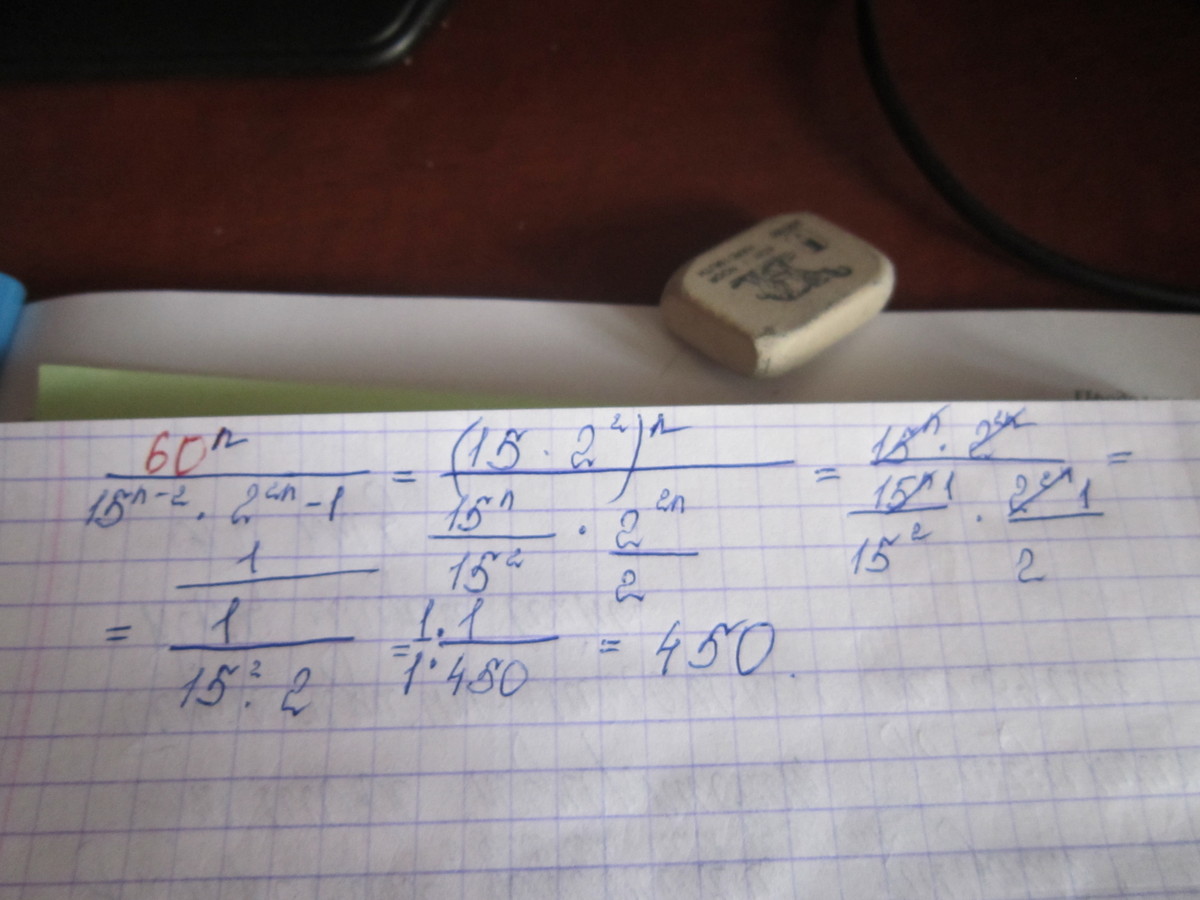 60ⁿ / 15ⁿ⁻² · 2²ⁿ⁻¹ = (15 · 2²)ⁿ / 15ⁿ/15² · 2²ⁿ/2 = 15ⁿ · 2²ⁿ / 15ⁿ 1/15² · 2²ⁿ 1/2 =
= 1 / 1/15² · 2 = 1 · 1 / 1 · 450 = 450.